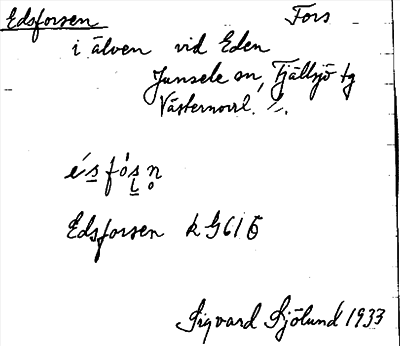 Edsforsen Fors
i älven vid Eden
Junsele sn, Fjällsjö tg
Västernorrl. l.
Edsforsen k G61 6
Sigvard Sjölund 1933